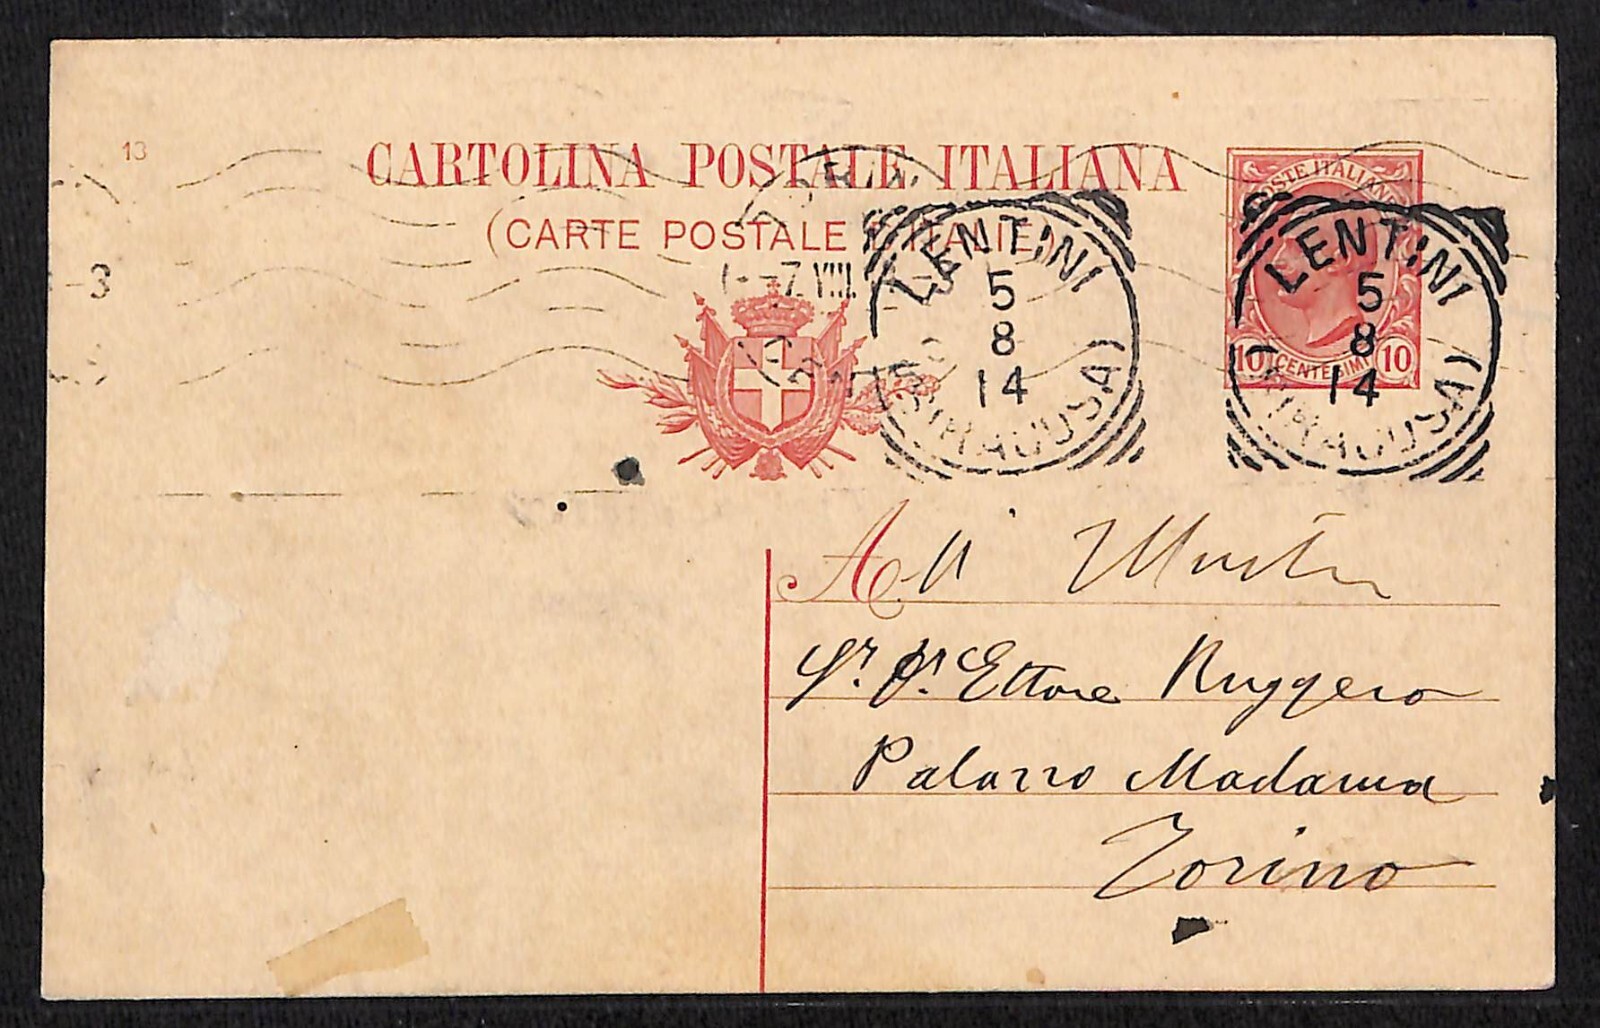 13
CARTOLINA POSTALE ITALIANA
(CARTE POSTALE D'ITALIE)
POSTE ITALIANE
10 CENTESIMI 10
LENTINI
5
8
14
(SIRACUSA)
LENTINI
5
8
14
(SIRACUSA)
-7.VIII
All' Illustr
Sr. Dr. Ettore Ruggero
Palazzo Madama
Torino